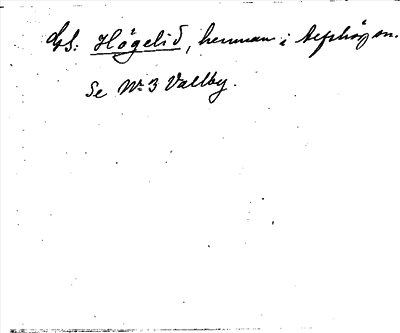 Gs: Högelid, hemman i Asphög sn.
Se Nr 3 Vallby.